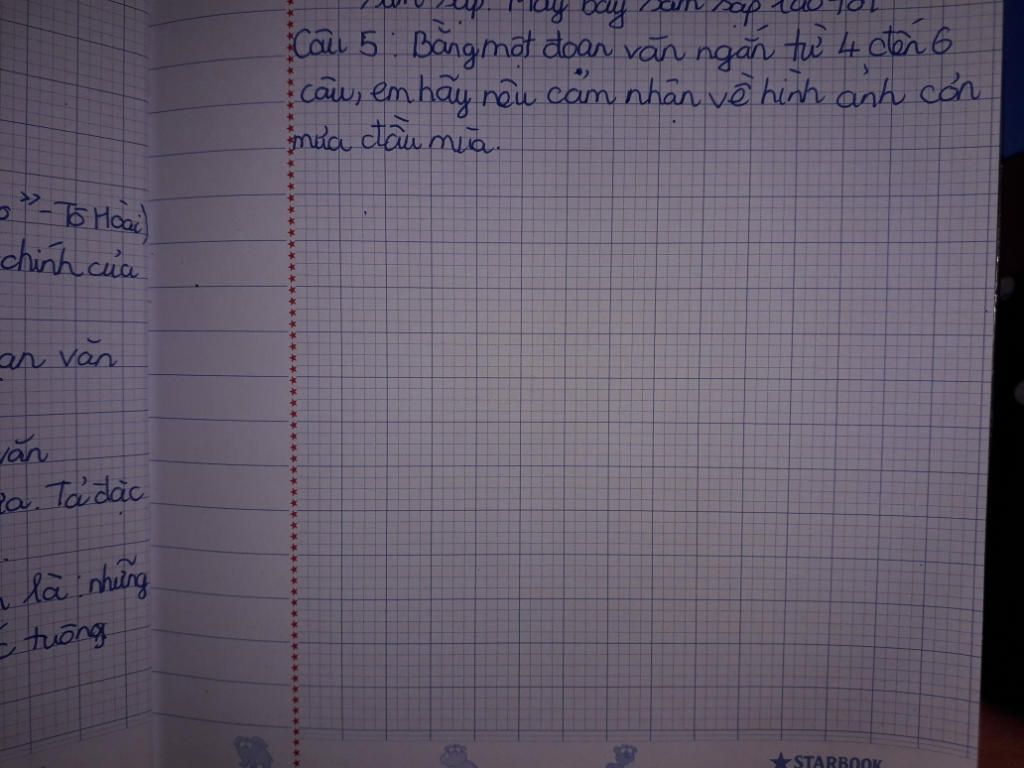 "-Tô Hoài)
chính của
văn
văn
Tả đặc
là những
tường
Câu 5: Bằng một đoạn văn ngắn từ 4 đến 6
câu, em hãy nêu cảm nhận về hình ảnh cơn
mưa đầu mùa.
STARBOOK